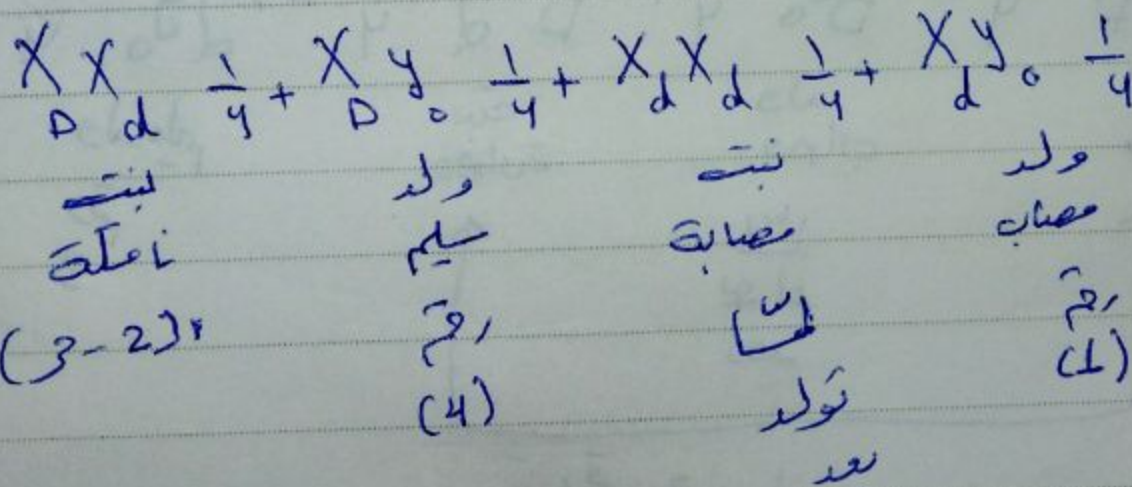 X_D X_d 1/4 + X_D y_0 1/4 + X_d X_d 1/4 + X_d y_0 1/4
بنت ولد بنت ولد
ناقلة سليم مصابة مصاب
(3-2) رقم لمّا رقم
(4) تولد (1)
بعد